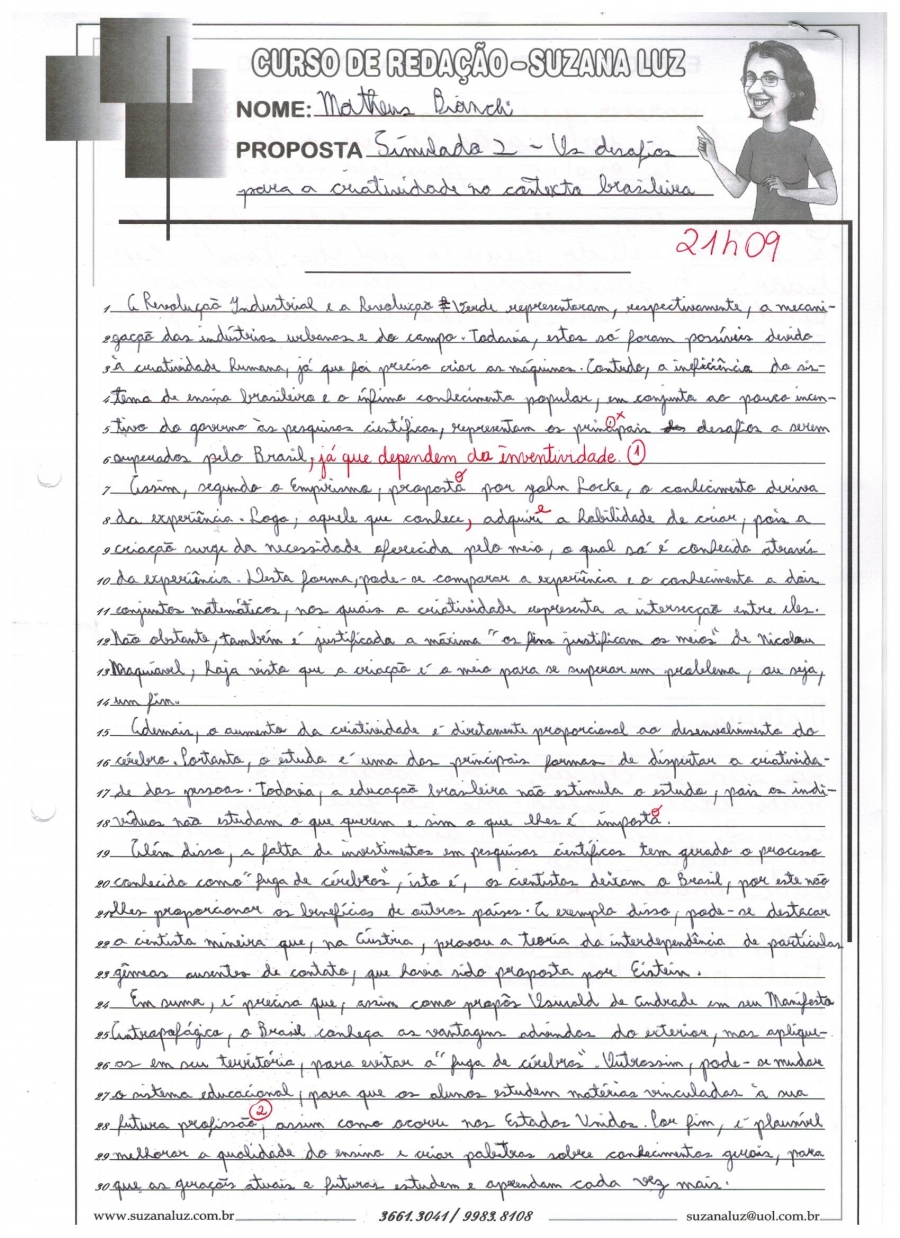 CURSO DE REDAÇÃO - SUZANA LUZ
NOME: Matheus Bianchi
PROPOSTA Simulado 2 - Os desafios
para a criatividade no contexto brasileiro
21h09
1 A Revolução Industrial e a Revolução Verde representaram, respectivamente, a mecani-
2 zação das indústrias urbanas e do campo. Todavia, estas só foram possíveis devido
3 à criatividade humana, já que foi preciso criar as máquinas. Contudo, a ineficiência do sis-
4 tema de ensino brasileiro e o ínfimo conhecimento popular, em conjunto ao pouco incen-
5 tivo do governo às pesquisas científicas, representam os principais desafios a serem
6 superados pelo Brasil, já que dependem da inventividade. 1
7 Assim, segundo o Empirismo, proposto por John Locke, o conhecimento deriva
8 da experiência. Logo, aquele que conhece, adquire a habilidade de criar, pois a
9 criação surge da necessidade oferecida pelo meio, o qual só é conhecido através
10 da experiência. Desta forma, pode-se comparar a experiência e o conhecimento a dois
11 conjuntos matemáticos, nos quais a criatividade representa a intersecção entre eles.
12 Não obstante, também é justificada a máxima "os fins justificam os meios" de Nicolau
13 Maquiável, haja vista que a criação é o meio para se superar um problema, ou seja,
14 um fim.
15 Ademais, o aumento da criatividade é diretamente proporcional ao desenvolvimento do
16 cérebro. Portanto, o estudo é uma das principais formas de dispertar a criativida-
17 de das pessoas. Todavia, a educação brasileira não estimula o estudo, pois os indi-
18 víduos não estudam o que querem e sim o que lhes é imposto.
19 Além disso, a falta de investimentos em pesquisas científicas tem gerado o processo
20 conhecido como "fuga de cérebros", isto é, os cientistas deixam o Brasil, por este não
21 lhes proporcionar os benefícios de outros países. A exemplo disso, pode-se destacar
22 a cientista mineira que, na Áustria, provou a teoria da interdependência de partículas
23 gêmeas ausentes de contato, que havia sido proposta por Eistein.
24 Em suma, é preciso que, assim como propôs Oswald de Andrade em seu Manifesto
25 Antropofágico, o Brasil conheça as vantagens advindas do exterior, mas aplique-
26 as em seu território, para evitar a "fuga de cérebros". Outrossim, pode-se mudar
27 o sistema educacional, para que os alunos estudem matérias vinculadas à sua
28 futura profissão, 2 assim como ocorre nos Estados Unidos. Por fim, é plausível
29 melhorar a qualidade do ensino e criar palestras sobre conhecimentos gerais, para
30 que as gerações atuais e futuras estudem e aprendam cada vez mais.
www.suzanaluz.com.br 3661.3041 / 9983.8108 suzanaluz@uol.com.br